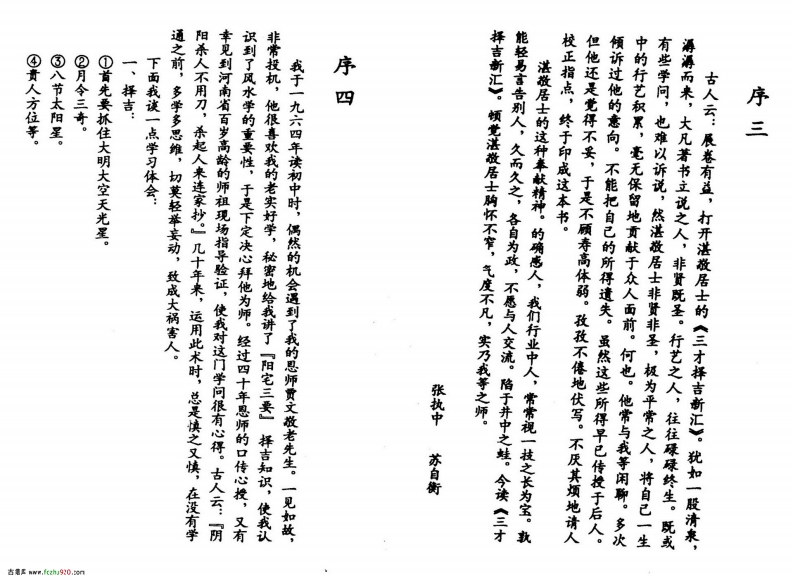 序三
古人云：展卷有益，打开湛敬居士的《三才择吉新汇》。犹如一股清泉，
潺潺而来，大凡著书立说之人，非贤既圣。行艺之人，往往碌碌终生。既或
有些学问，也难以诉说，然湛敬居士非贤非圣，极为平常之人，将自己一生
中的行艺积累，毫无保留地贡献于众人面前。何也。他常与我等闲聊。多次
倾诉过他的意向。不能把自己的所得遗失。虽然这些所得早已传授于后人。
但他还是觉得不妥，于是不顾寿高体弱。孜孜不倦地伏写。不厌其烦地请人
校正指点，终于印成这本书。
湛敬居士的这种奉献精神。的确感人，我们行业中人，常常视一技之长为宝。孰
能轻易言告别人，久而久之，各自为政，不愿与人交流。陷于井中之蛙。今读《三才
择吉新汇》。顿觉湛敬居士胸怀不窄，气度不凡，实乃我等之师。
张执中 苏自衡
序四
我于一九六四年读初中时，偶然的机会遇到了我的恩师贾文敬老先生。一见如故，
非常投机，他很喜欢我的老实好学，秘密地给我讲了『阳宅三要』择吉知识，使我认
识到了风水学的重要性，于是下定决心拜他为师。经过四十年恩师的口传心授，又有
幸见到河南省百岁高龄的师祖现场指导验证，使我对这门学问很有心得。古人云：『阴
阳杀人不用刀，杀起人来连家抄。』几十年来，运用此术时，总是慎之又慎，在没有学
通之前，多学多思维，切莫轻举妄动，致成大祸害人。
下面我谈一点学习体会：
一、择吉：
①首先要抓住大明大空天光星。
②月令三奇。
③八节太阳星。
④贵人方位等。
古易库 www.fczhu920.com